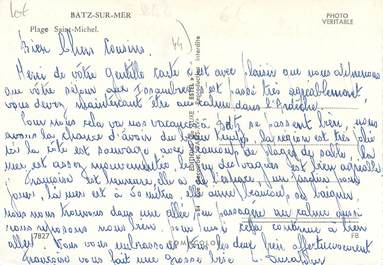 Lot
BATZ-SUR-MER
Plage Saint-Michel.
PHOTO
VERITABLE
Bien Chers Cousins.
Merci de vôtre gentille carte c'est avec plaisir que nous
vu vôtre séjour que s'est passé très agréablement.
vous devez maintenant être au calme dans l'Ardèche.
Pour nous cela va nos vacances à Batz se passent bien, nous
avons la chance d'avoir du beau temps, la région est très jolie
ici la côte est sauvage avec beaucoup de plages de sable, la
mer est assez mouvementée, le bruit des vagues est bien agréable
Françoise est heureuse, elle a de l'espace, un jardin pour
jouer, la mer est à 50 mètres, elle aime beaucoup, ou
nous nous trouvons dans une allée peu passagère au calme aussi
nous reposons nous bien, pour tout cela continue à bien
aller. Nous vous embrassons tous deux bien affectueusement
Françoise vous fait une grosse bise
7827
FB
Reproduction Interdite